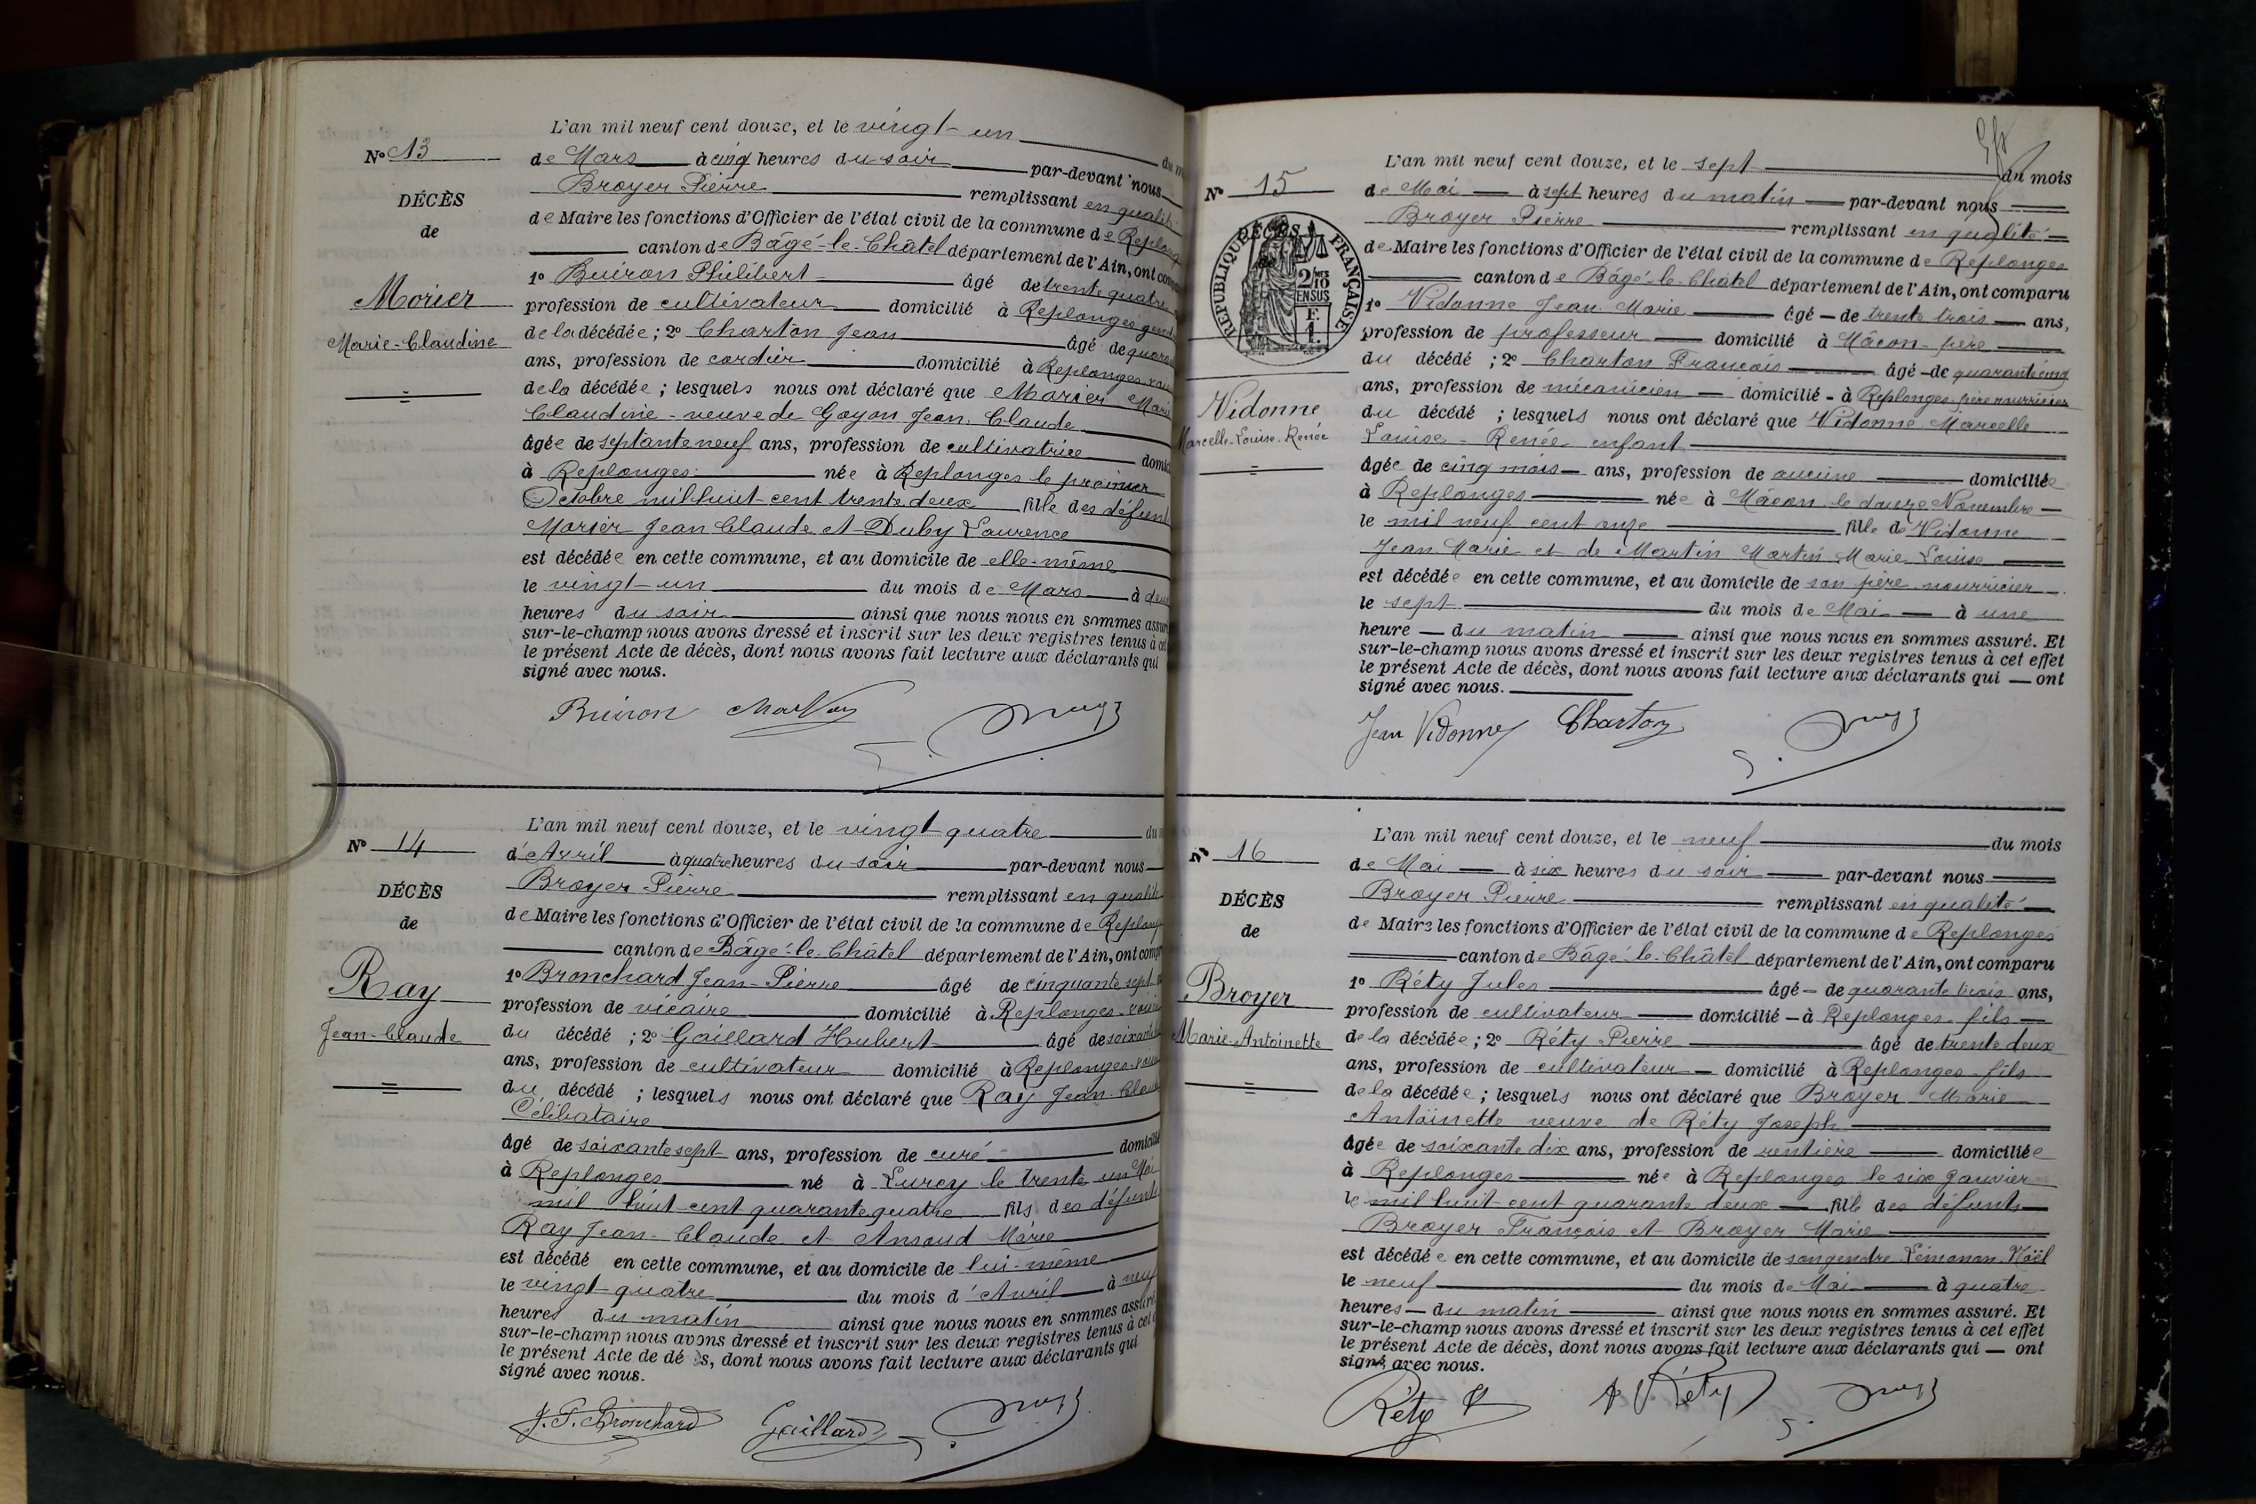 N° 13
DÉCÈS
de
Morier
Marie-Claudine
L'an mil neuf cent douze, et le vingt-un
de Mars à cinq heures du soir par-devant nous
Broyer Pierre remplissant en qualité
de Maire les fonctions d'Officier de l'état civil de la commune de Replonges
canton de Bâgé-le-Châtel département de l'Ain, ont
1° Buiron Philibert âgé de trente quatre
profession de cultivateur domicilié à Replonges
de la décédée ; 2° Charton Jean âgé de
ans, profession de cordier domicilié à Replonges
de la décédée ; lesquels nous ont déclaré que Morier Marie
Claudine - veuve de Goyon Jean Claude
âgée de septante neuf ans, profession de cultivatrice
à Replonges née à Replonges le premier
Octobre mil huit-cent trente deux fille des
Morier Jean Claude et Duby Laurence
est décédée en cette commune, et au domicile de elle-même
le vingt-un du mois de Mars à
heures du soir ainsi que nous nous en sommes
sur-le-champ nous avons dressé et inscrit sur les deux registres tenus à
le présent Acte de décès, dont nous avons fait lecture aux déclarants qui
signé avec nous.
Buiron Charton
N° 14
DÉCÈS
de
Ray
Jean-Claude
L'an mil neuf cent douze, et le vingt-quatre du
d'Avril à quatre heures du soir par-devant nous
Broyer Pierre remplissant en qualité
de Maire les fonctions d'Officier de l'état civil de la commune de
canton de Bâgé-le-Châtel département de l'Ain, ont
1° Bronchard Jean-Pierre âgé de cinquante sept
profession de vicaire domicilié à Replonges
du décédé ; 2° Gaillard Hubert âgé de
ans, profession de cultivateur domicilié à Replonges
du décédé ; lesquels nous ont déclaré que Ray Jean
Célibataire
âgé de soixante sept ans, profession de curé
à Replonges né à Lurcy le trente un Mai
mil huit cent quarante quatre fils des
Ray Jean-Claude et Ansoud Marie
est décédé en cette commune, et au domicile de lui-même
le vingt-quatre du mois d'Avril à neuf
heures du matin ainsi que nous nous en sommes
sur-le-champ nous avons dressé et inscrit sur les deux registres tenus à
le présent Acte de décès, dont nous avons fait lecture aux déclarants qui
signé avec nous.
J. P. Bronchard Gaillard
N° 15
DÉCÈS
RÉPUBLIQUE FRANÇAISE
2/10 MES EN SUS
F. 1.
Vidonne
Marcelle-Louise-Renée
L'an mil neuf cent douze, et le sept du mois
de Mai à sept heures du matin par-devant nous
Broyer Pierre remplissant en qualité
de Maire les fonctions d'Officier de l'état civil de la commune de Replonges
canton de Bâgé-le-Châtel département de l'Ain, ont comparu
1° Vidonne Jean Marie âgé de trente trois ans,
profession de professeur domicilié à Mâcon - père
du décédé ; 2° Charton François âgé de quarante cinq
ans, profession de mécanicien domicilié à Replonges père nourricier
du décédé ; lesquels nous ont déclaré que Vidonne Marcelle
Louise - Renée enfant
âgée de cinq mois ans, profession de aucune domiciliée
à Replonges née à Mâcon le douze Novembre
le mil neuf cent onze fille de Vidonne
Jean Marie et de Martin Martin Marie Louise
est décédée en cette commune, et au domicile de son père nourricier
le sept du mois de Mai à une
heure du matin ainsi que nous nous en sommes assuré. Et
sur-le-champ nous avons dressé et inscrit sur les deux registres tenus à cet effet
le présent Acte de décès, dont nous avons fait lecture aux déclarants qui ont
signé avec nous.
Jean Vidonne Charton
N° 16
DÉCÈS
de
Broyer
Marie-Antoinette
L'an mil neuf cent douze, et le neuf du mois
de Mai à six heures du soir par-devant nous
Broyer Pierre remplissant en qualité
de Maire les fonctions d'Officier de l'état civil de la commune de Replonges
canton de Bâgé-le-Châtel département de l'Ain, ont comparu
1° Réty Jules âgé de quarante trois ans,
profession de cultivateur domicilié à Replonges - fils
de la décédée ; 2° Réty Pierre âgé de trente deux
ans, profession de cultivateur domicilié à Replonges - fils
de la décédée ; lesquels nous ont déclaré que Broyer Marie
Antoinette veuve de Réty Joseph
âgée de soixante dix ans, profession de rentière domiciliée
à Replonges née à Replonges le six Janvier
le mil huit cent quarante deux fille des défunts
Broyer François et Broyer Marie
est décédée en cette commune, et au domicile de son gendre Lémonon Noël
le neuf du mois de Mai à quatre
heures du matin ainsi que nous nous en sommes assuré. Et
sur-le-champ nous avons dressé et inscrit sur les deux registres tenus à cet effet
le présent Acte de décès, dont nous avons fait lecture aux déclarants qui ont
signé avec nous.
Réty Réty